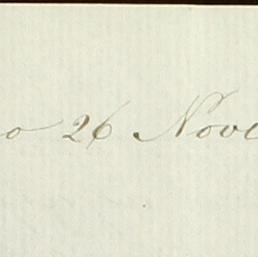 o 26 Nove